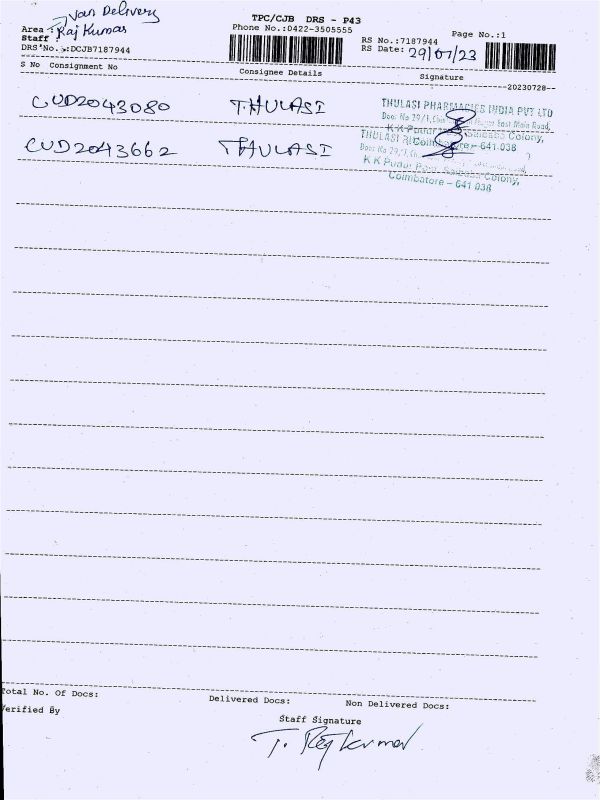 Van Delivery
TPC/CJB DRS - P43
Area : Raj Kumar
Phone No.:0422-3505555
Page No.:1
Staff :
RS No.:7187944
DRS No.:DCJB7187944
RS Date: 29/07/23
S No Consignment No
Consignee Details
Signature
--20230728--
CUD2043080 THULASI
THULASI PHARMACIES INDIA PVT LTD
Door No 29/1, East Main Road,
K K Pudur Colony,
Coimbatore - 641 038
CUD2043662 THULASI
THULASI
Door No 29/1,
K K Pudur Colony,
Coimbatore - 641 038
Total No. Of Docs:
Delivered Docs:
Non Delivered Docs:
Verified By
Staff Signature
T. Rajkumar